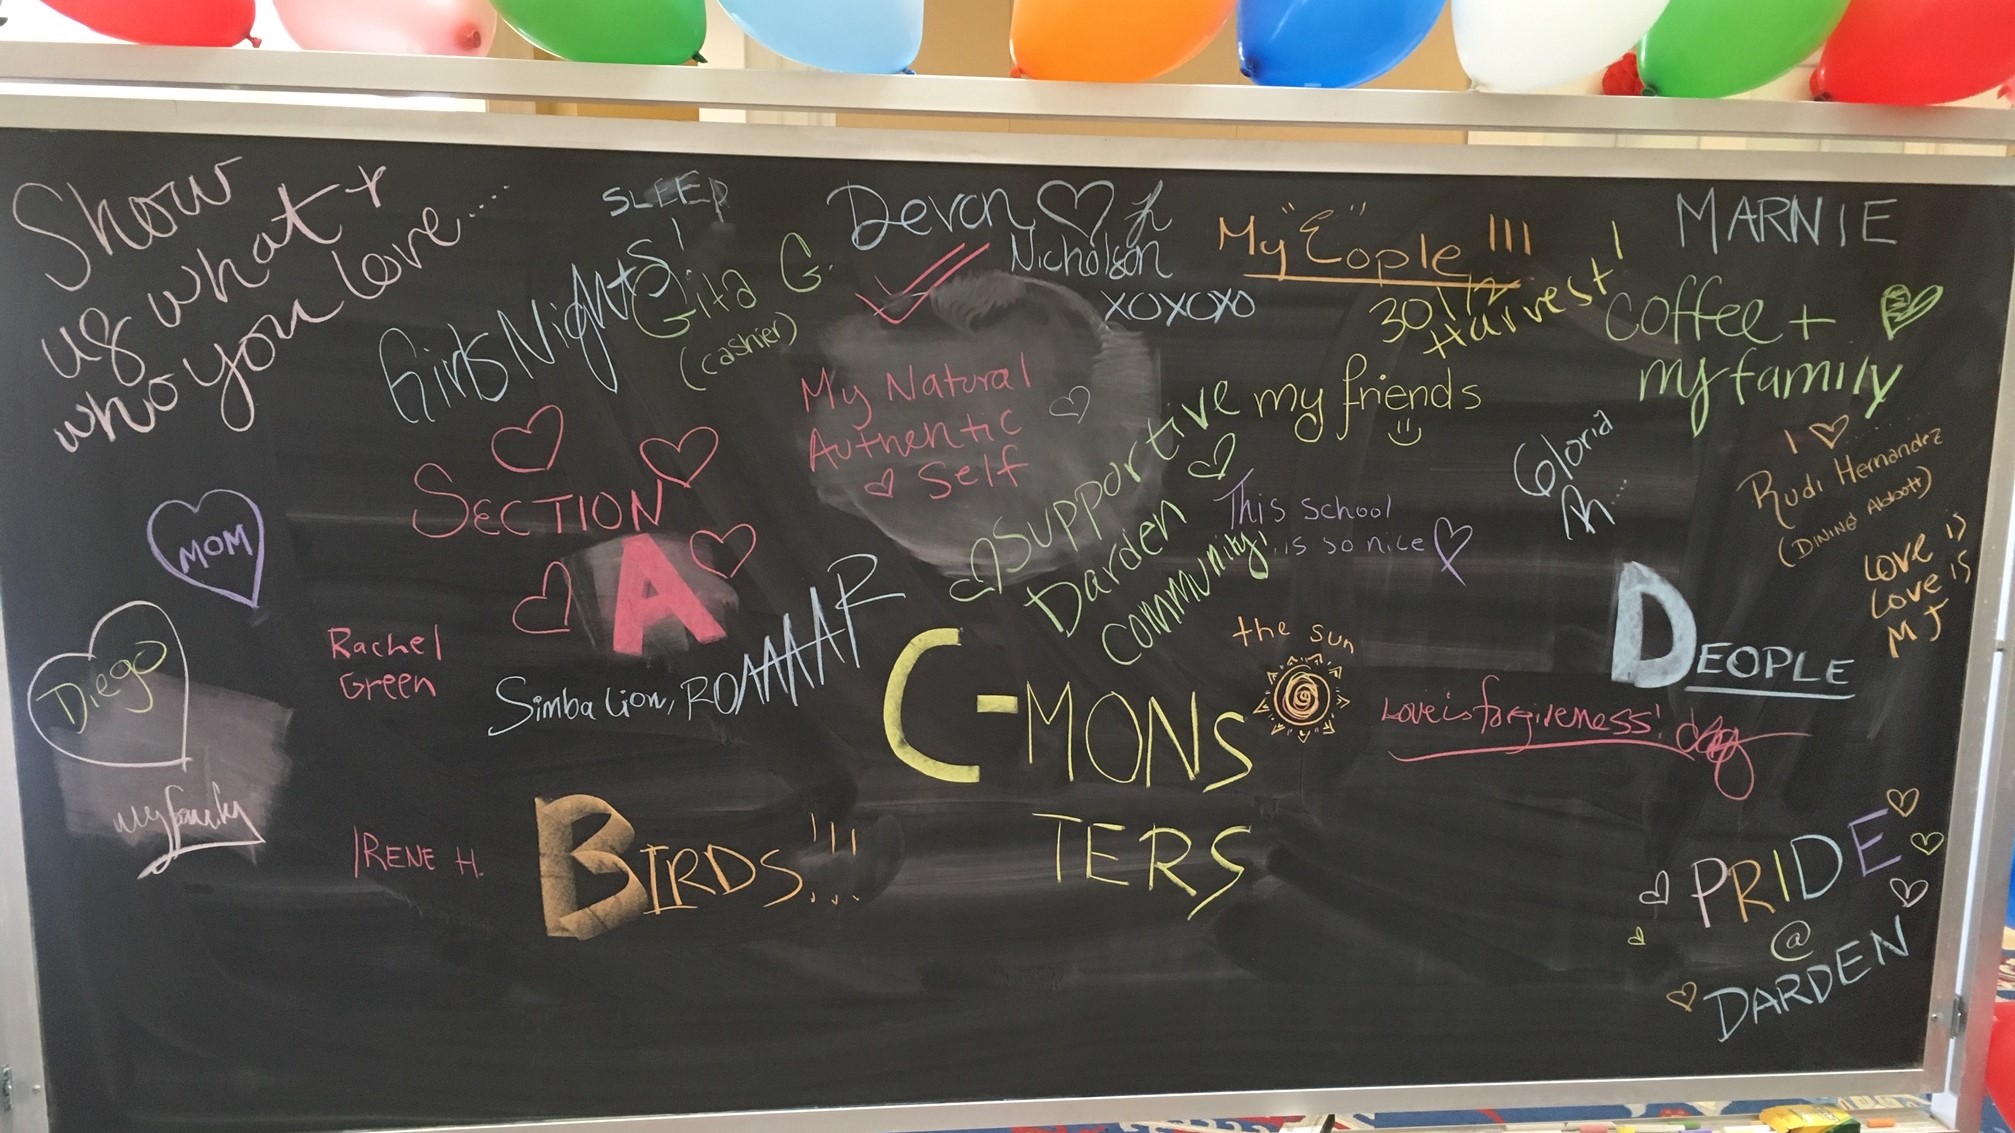 Show
us what +
who you love...
SLEEP
Girls Nights!
Gita G.
(cashier)
Devon
Nicholson
XOXOXO
My "E"ople!!!
Harvest!
MARNIE
coffee +
my family
My Natural
Authentic
Self
Supportive
Darden
Community!
my friends
This school
is so nice
Gloria
I ♡
Rudi Hernandez
(DINING Abbott)
LOVE is
LOVE is
MJ
SECTION
A
MOM
Diego
my family
Rachel
Green
Simba Lion, ROAAAAR
C-MONS
TERS
the sun
DEOPLE
Love is forgiveness!
IRENE H.
BIRDS!!!
PRIDE
@
DARDEN